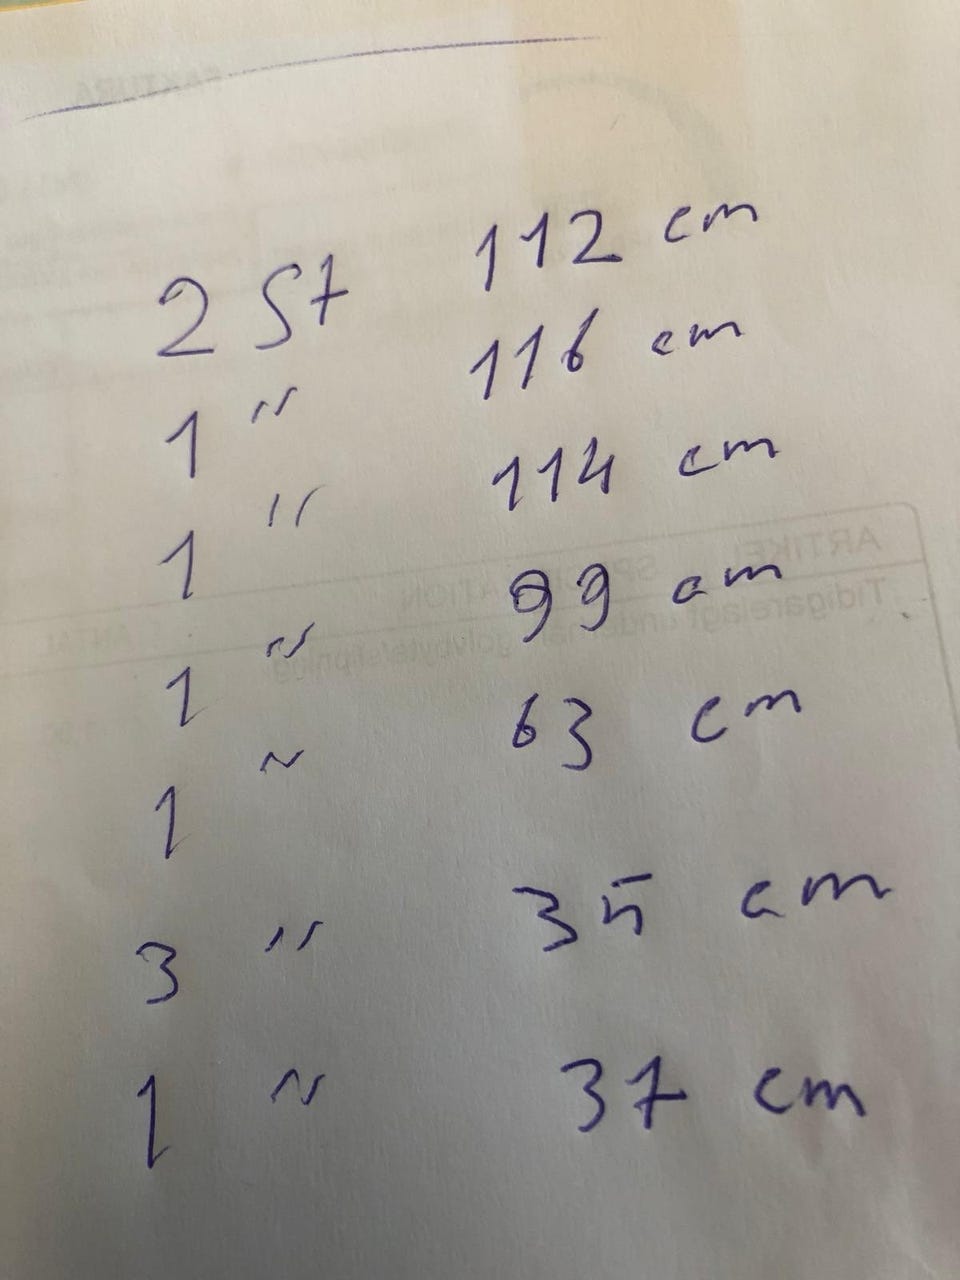 FAKTURA
2 St 112 cm
1 " 116 cm
1 " 114 cm
ARTIKEL SPECIFIKATION
1 " 99 cm
ANTAL
1 " 63 cm
3 " 35 cm
1 " 37 cm